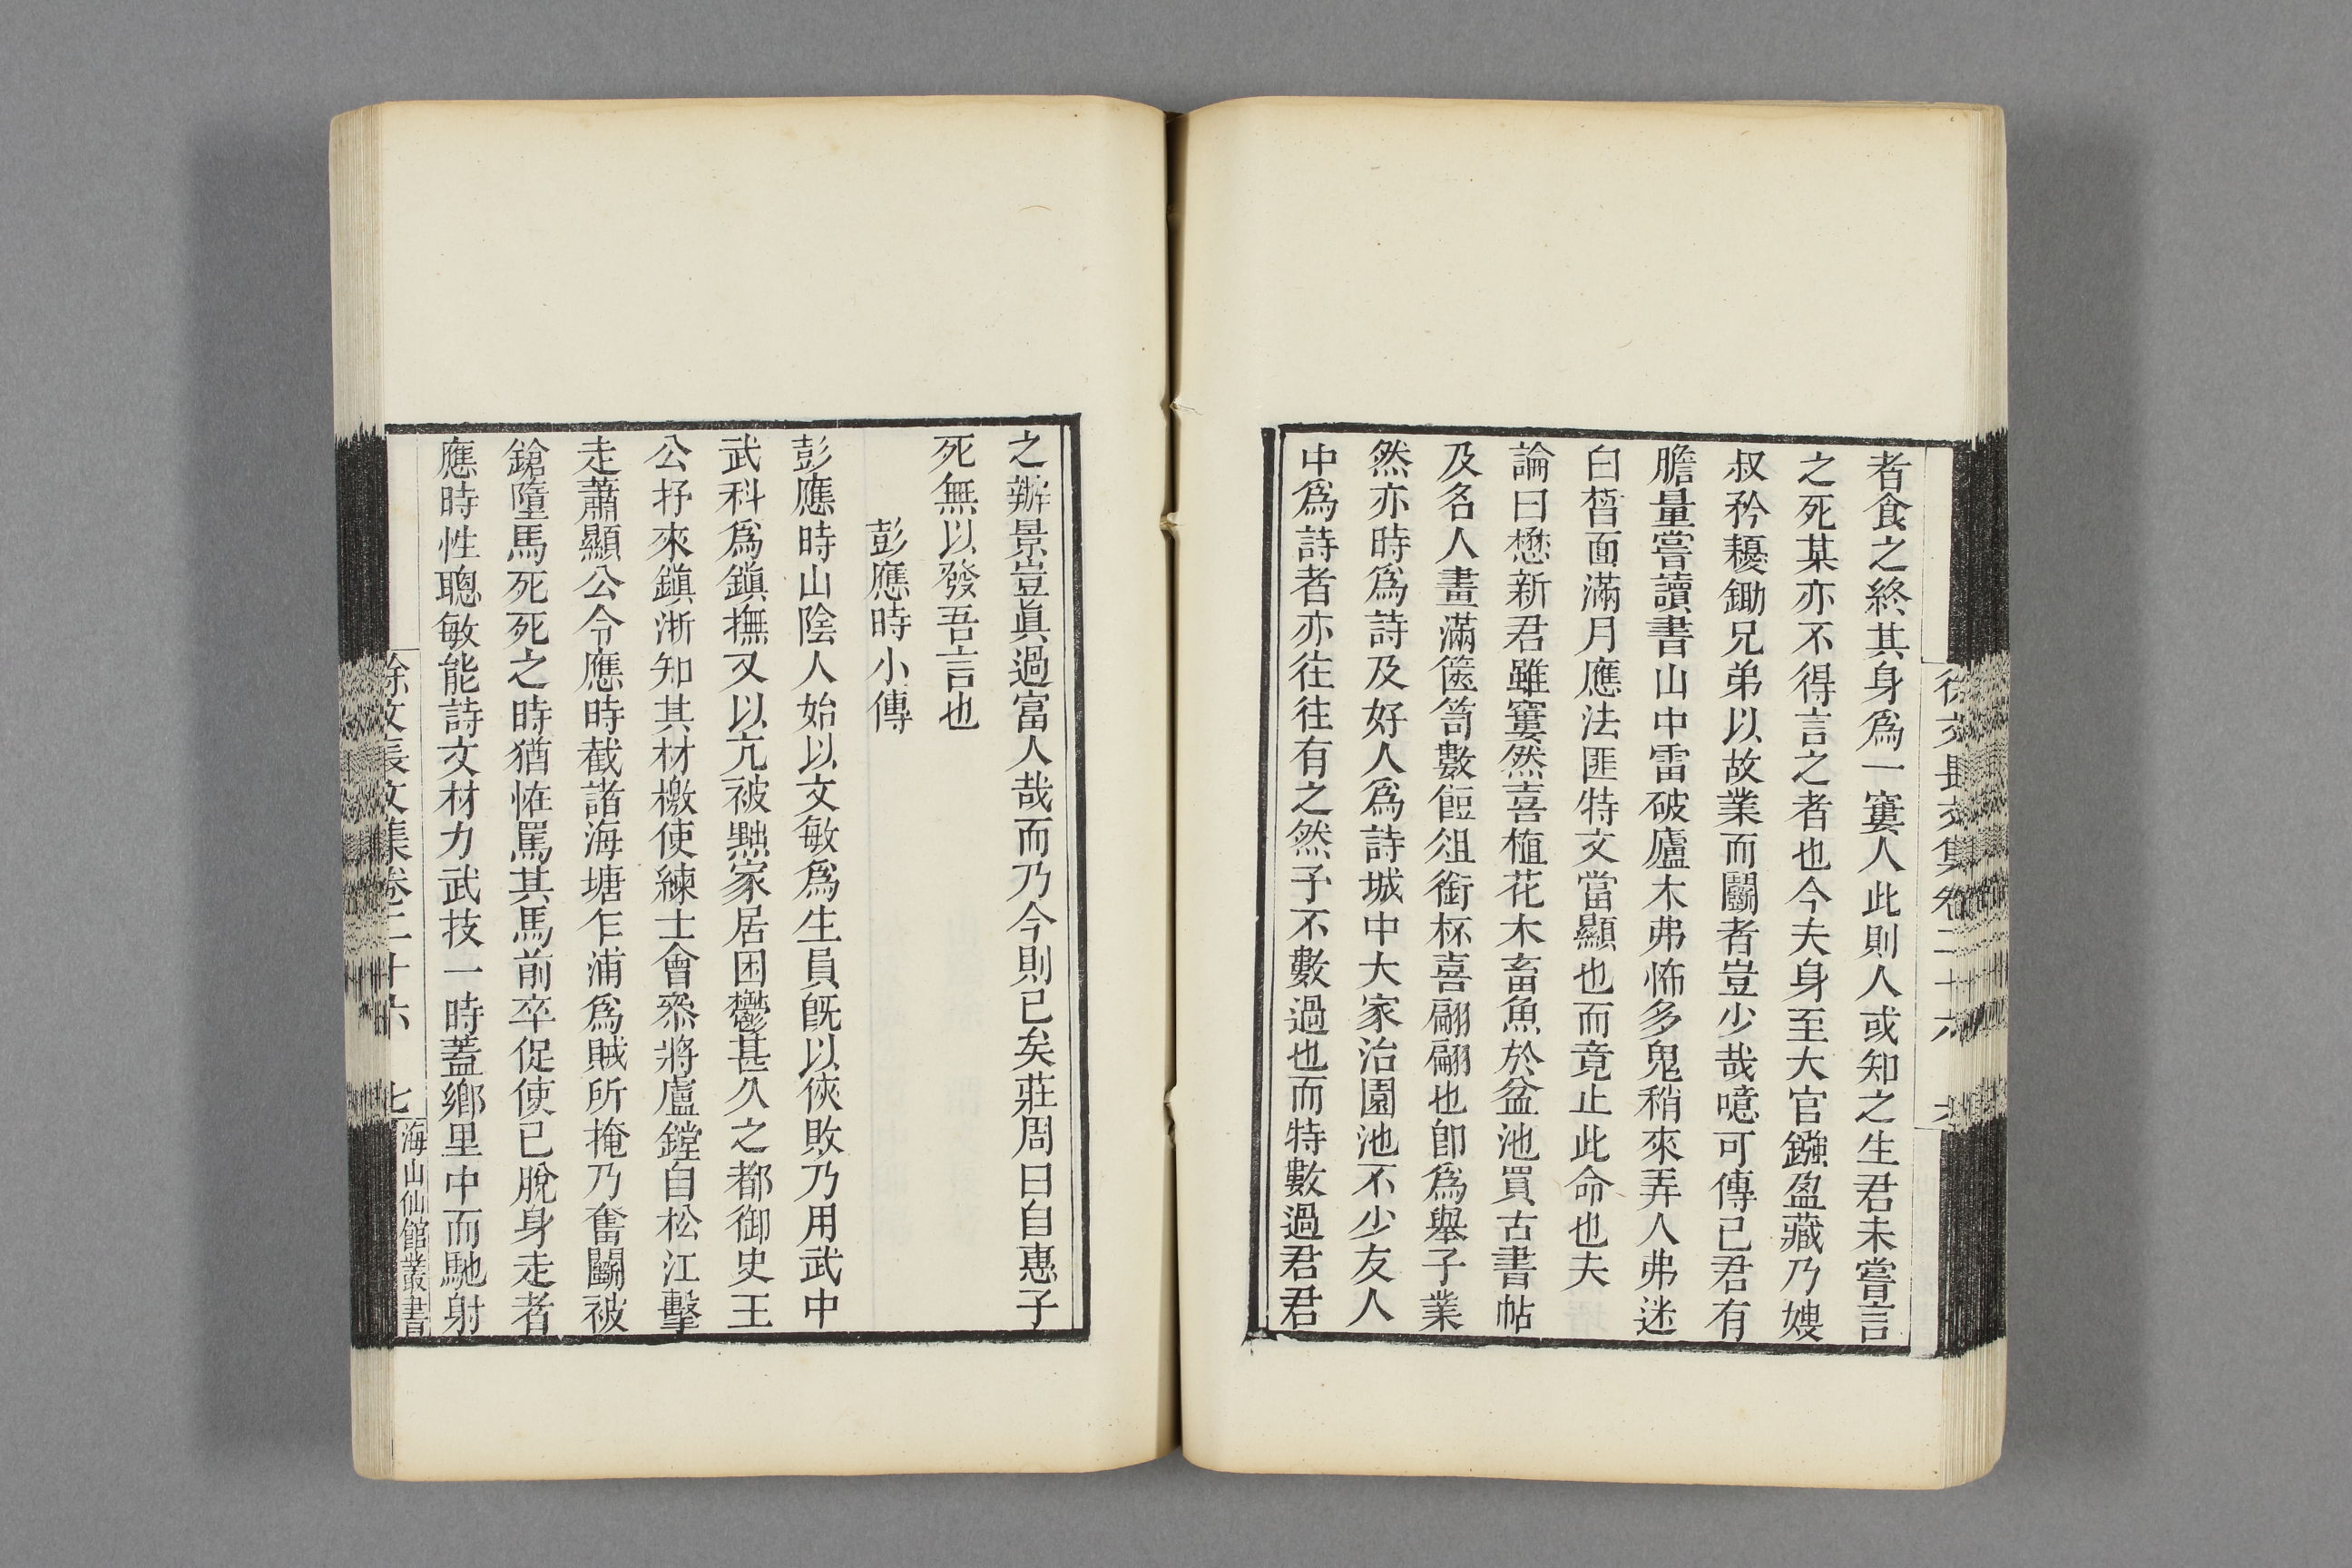 徐文長文集卷二十六
者食之終其身爲一窶人此則人或知之生君未嘗言
之死某亦不得言之者也今夫身至大官鏹盈藏乃嫂
叔矜耰鋤兄弟以故業而鬭者豈少哉噫可傳已君有
膽量嘗讀書山中雷破廬木弗怖多鬼稍來弄人弗迷
白皙面滿月應法匪特文當顯也而竟止此命也夫
論曰懋新君雖窶然喜植花木畜魚於盆池買古書帖
及名人畫滿篋笥數飣俎銜杯喜翩翩也卽爲舉子業
然亦時爲詩及好人爲詩城中大家治園池不少友人
中爲詩者亦往往有之然予不數過也而特數過君君
之辦景豈眞過富人哉而乃今則已矣莊周曰自惠子
死無以發吾言也
彭應時小傳
彭應時山陰人始以文敏爲生員旣以俠敗乃用武中
武科爲鎭撫又以亢被黜家居困鬱甚久之都御史王
公抒來鎭浙知其材檄使練士會叅將盧鏜自松江擊
走蕭顯公令應時截諸海塘乍浦爲賊所掩乃奮鬭被
鎗墮馬死死之時猶恠罵其馬前卒促使已脫身走者
應時性聰敏能詩文材力武技一時蓋鄉里中而馳射
徐文長文集卷二十六
七
海山仙館叢書